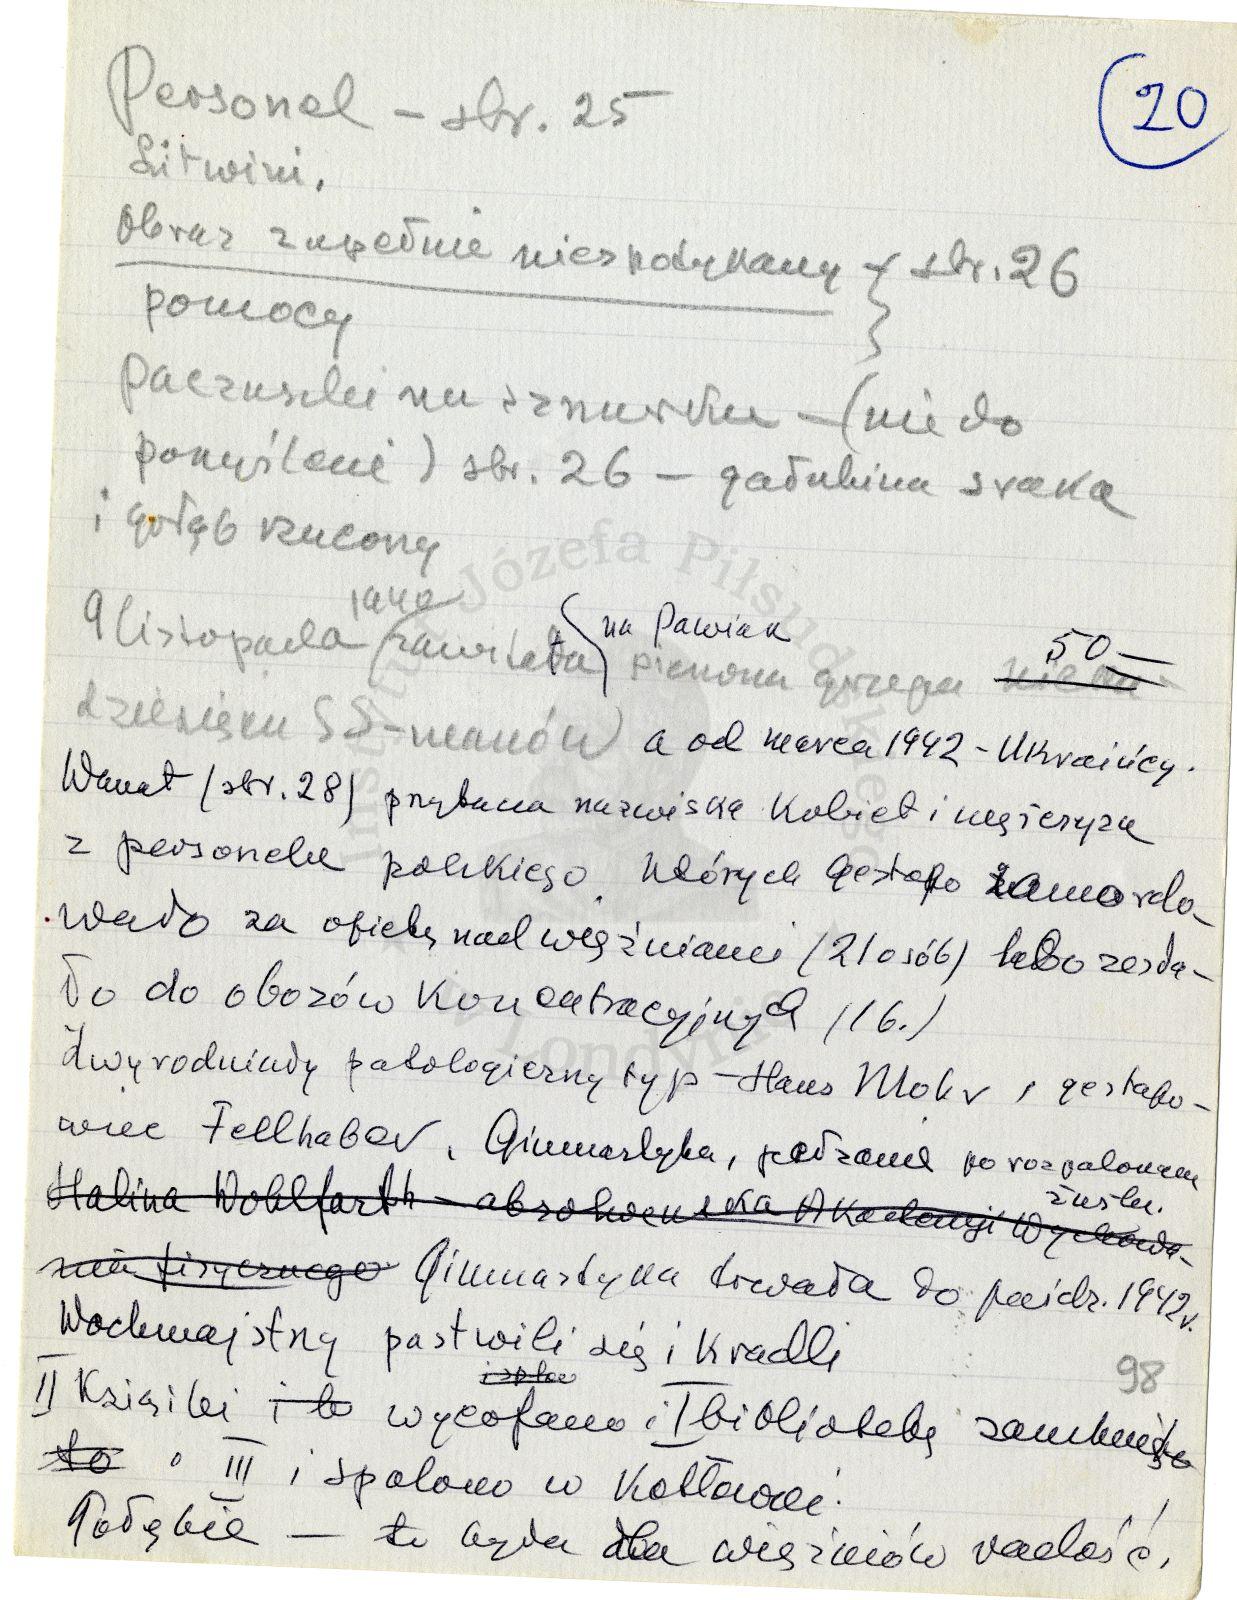 20
Personel – str. 25
Litwini.
Obraz zupełnie niespotykany } str. 26
pomocy
paczuszki na sznurku – (nie do
pomyślenie) str. 26 – gołubina sraka
i gołąb rzucony
9 listopada zawitała na Pawiak pierwsza grupa 50 –
dziesięciu SS-manów) a od marca 1942 – Ukraińcy.
Wanat (str. 28) przytacza nazwiska kobiet i mężczyzn
z personelu polskiego których gestapo zamordo-
wało za opiekę nad więźniami (21 osób) lub zesła-
ło do obozów koncentracyjnych (16.)
Zwyrodniały patologiczny typ – Hans Mohr, gestapo-
wiec Fellhaber. Gimnastyka, pełzanie po rozpalonym
żużlu.
Halina Wohlfarth – absolwentka Akademji Wychowa-
nia fizycznego Gimnastyka trwała do paźdz. 1942 r.
Wachmajstrzy pastwili się i kradli
98
II Książki i to wycofano i I bibliotekę zamknięto
to . III i spalono w kotłowni.
Gołębie – to była dla więźniów radość,
Instytut Józefa Piłsudskiego w Londynie